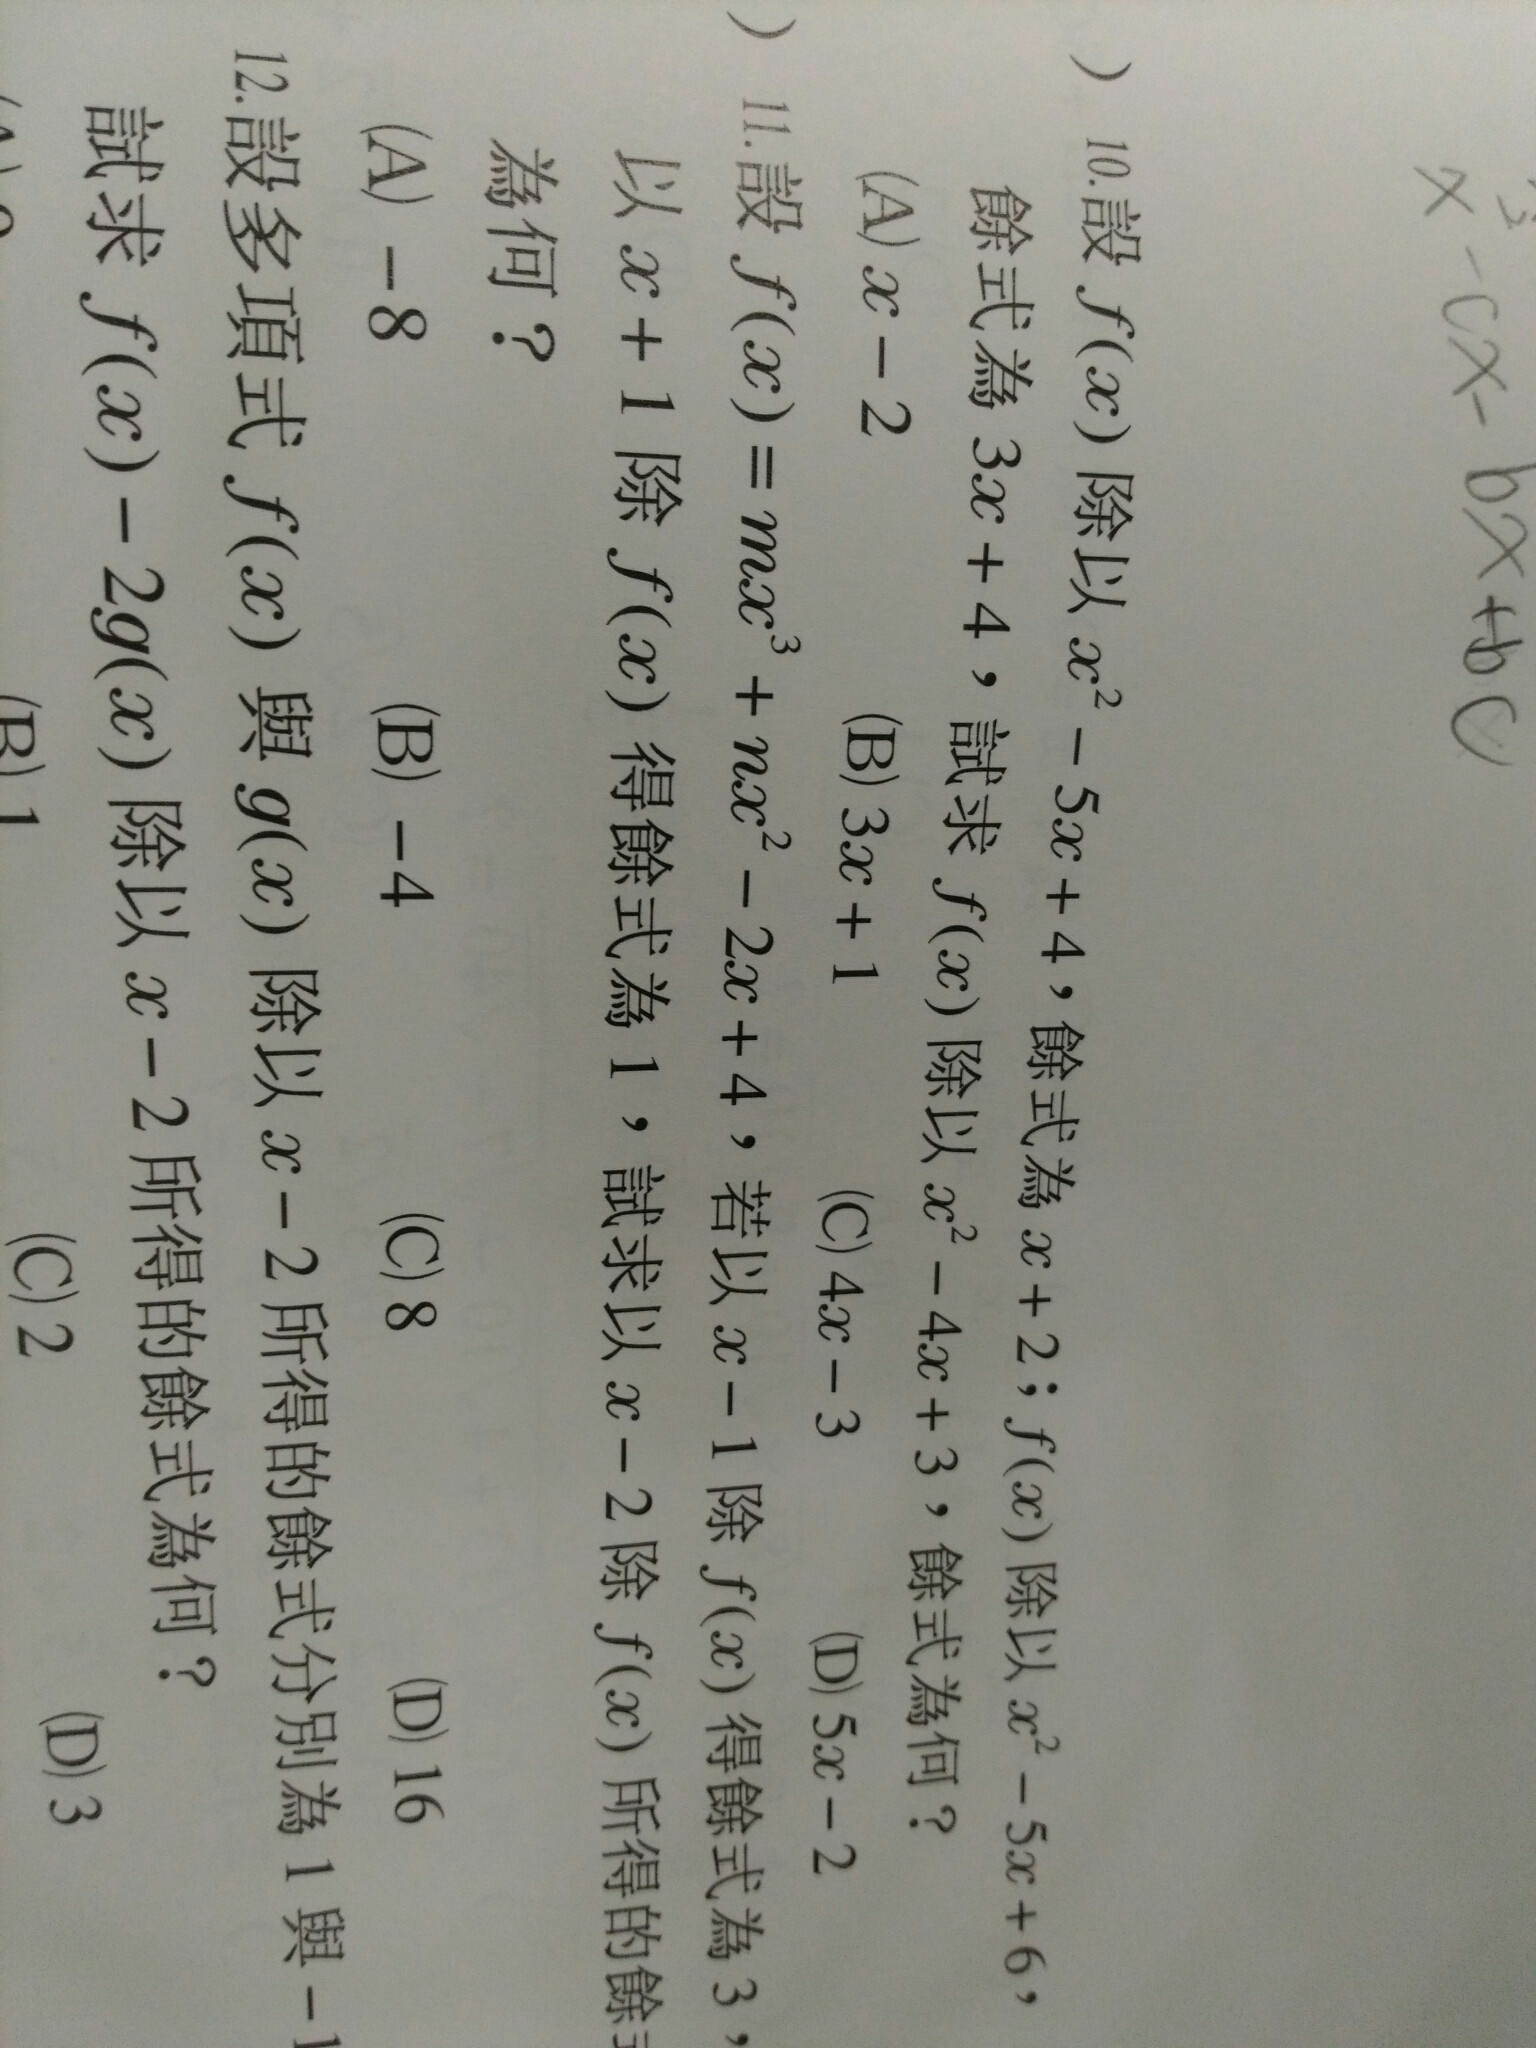 x - cx - bx + bc
) 10.設 f(x) 除以 x² − 5x + 4,餘式為 x + 2;f(x) 除以 x² − 5x + 6,
餘式為 3x + 4,試求 f(x) 除以 x² − 4x + 3,餘式為何?
(A) x − 2 (B) 3x + 1 (C) 4x − 3 (D) 5x − 2
) 11.設 f(x) = mx³ + nx² − 2x + 4,若以 x − 1 除 f(x) 得餘式為 3,
以 x + 1 除 f(x) 得餘式為 1,試求以 x − 2 除 f(x) 所得的餘式
為何?
(A) −8 (B) −4 (C) 8 (D) 16
12.設多項式 f(x) 與 g(x) 除以 x − 2 所得的餘式分別為 1 與 −1
試求 f(x) − 2g(x) 除以 x − 2 所得的餘式為何?
(B) 1 (C) 2 (D) 3